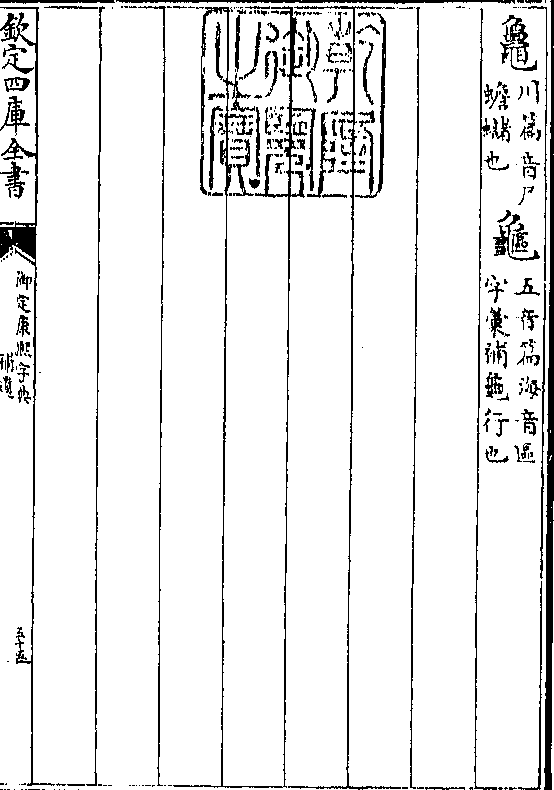 川篇音尸
蟾蠩也
五音篇海音區
字彙補龜行也
乾隆
御覽
之寶
欽定四庫全書
御定康熙字典
五十五